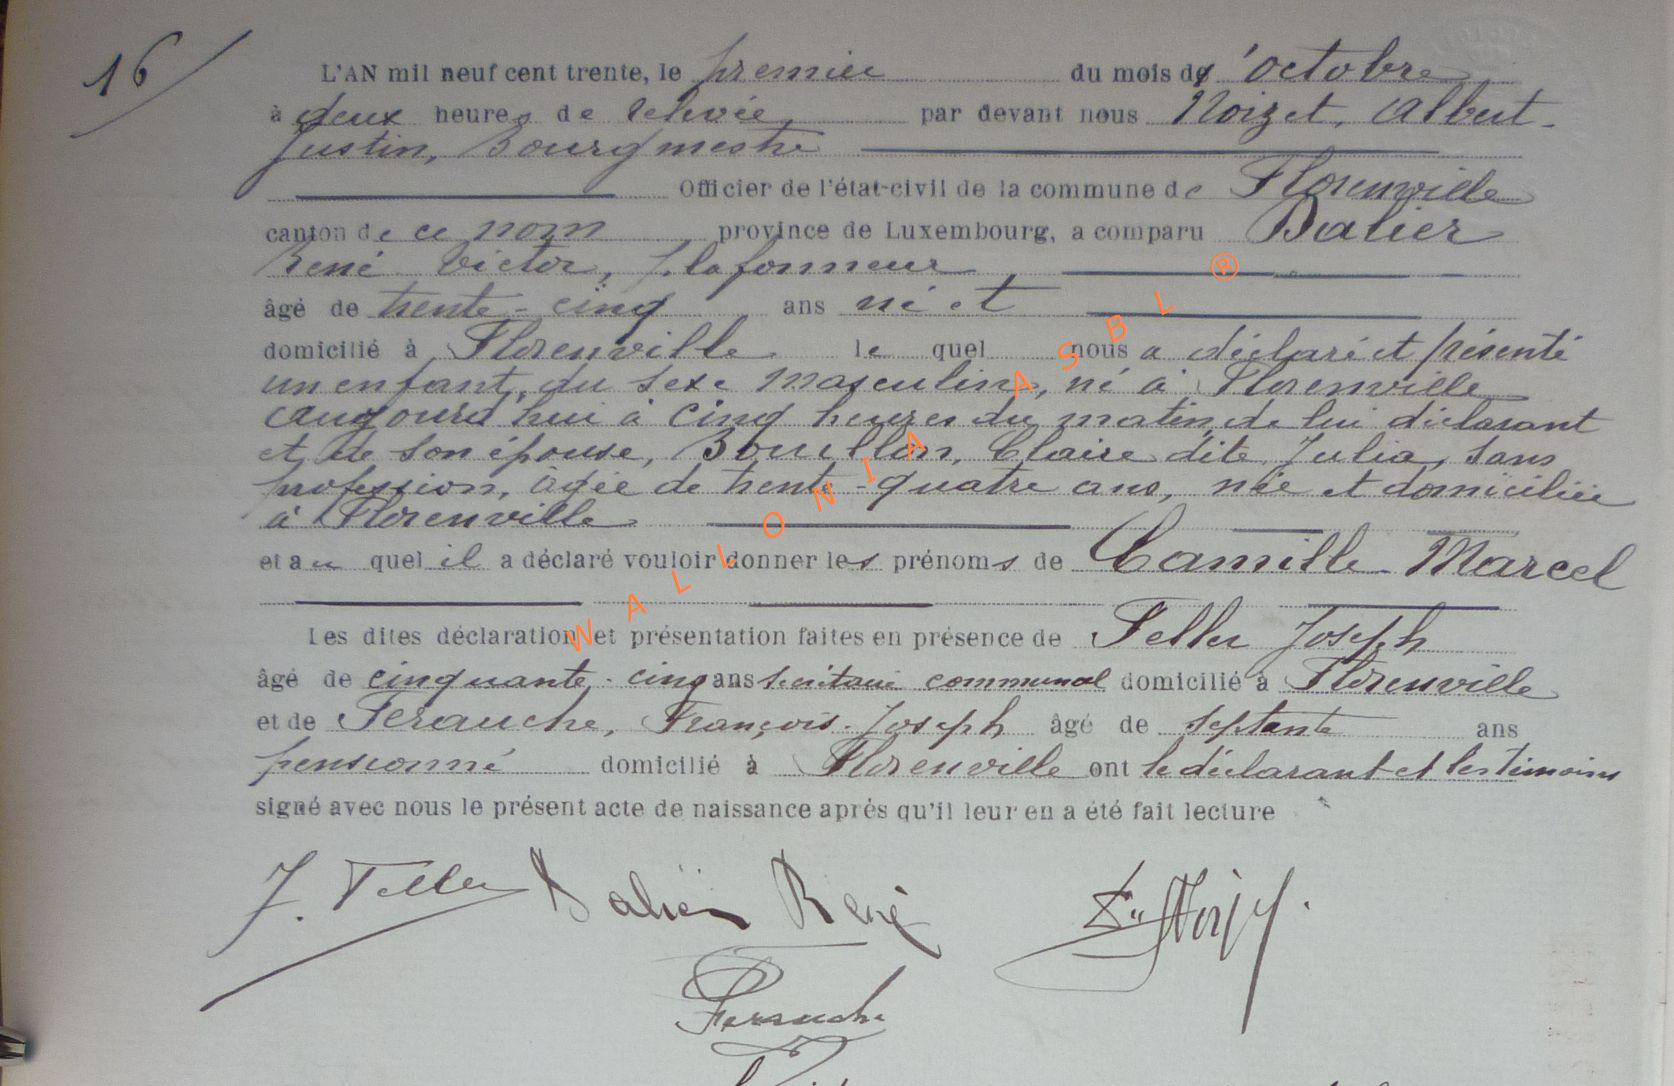 16/
L'AN mil neuf cent trente, le premier du mois d'octobre
à deux heures de relevée par devant nous Noizet, Albert-
Justin, Bourgmestre
Officier de l'état-civil de la commune de Florenville
canton de ce nom province de Luxembourg, a comparu Dalier
René Victor, Plafonneur,
âgé de trente-cinq ans né et
domicilié à Florenville le quel nous a déclaré et présenté
un enfant, du sexe masculin, né à Florenville
aujourd'hui à cinq heures du matin, de lui déclarant
et de son épouse, Bouillon, Claire dite Julia, sans
profession, âgée de trente-quatre ans, née et domiciliée
à Florenville
et au quel il a déclaré vouloir donner les prénoms de Camille Marcel
Les dites déclaration et présentation faites en présence de Feller Joseph
âgé de cinquante-cinq ans secrétaire communal domicilié à Florenville
et de Perauche, François-Joseph âgé de septante ans
pensionné domicilié à Florenville ont le déclarant et les témoins
signé avec nous le présent acte de naissance après qu'il leur en a été fait lecture
J. Feller Dalier René
Perauche
WALLONIA ASBL ®